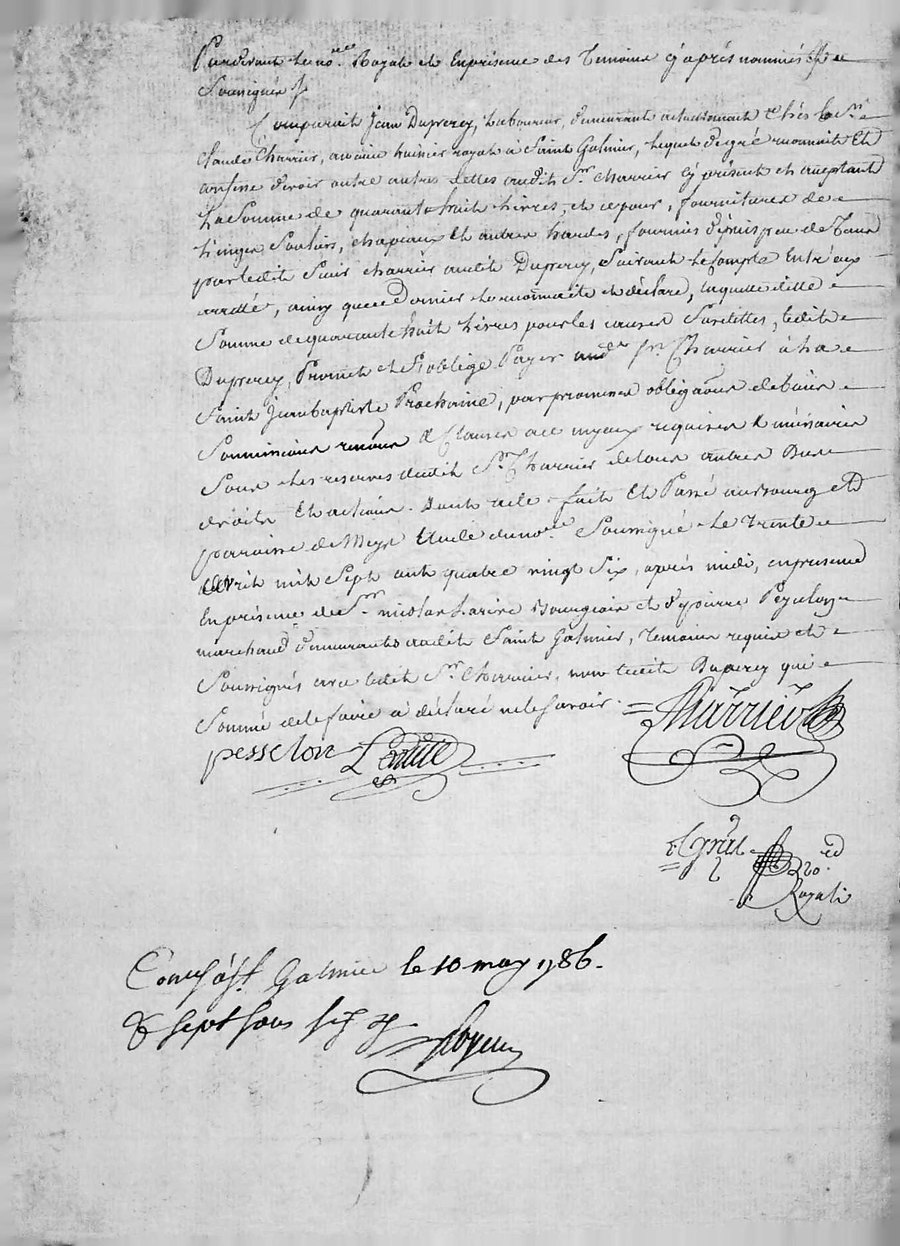 Pardevant Le no.re Royal et Enprésence des Temoins cy après nommés &
Soussignés
Comparait Jean Duperey, Laboureur, demeurant actuellement chés le Sr.
Claude Charrier, ancien huissier royal à Saint Galmier, Lequel de gré reconnait Et
confesse devoir entre autres dettes audit Sr. Charrier cy présent et aceptant
La Somme de quarante huit Livres, et ce pour, fournitures de
Linges Souliers, chapeaux Et autres hardes, fournies depuis peu de Tems
par Ledit Sieur Charrier audit Duperey, Suivant Le Compte Entr'eux
arrêté, ainsy que ce Dernier Le reconnait et déclare, laquelle ditte
Somme de quarante huit Livres pour les causes Susdittes, Ledit
Duperey, Promet et S'oblige Payer aud. Sr. Charrier à La
Saint Jean baptiste Prochaine, par promesses obligaons de biens
Soumissions renons & Clauses à ce requises & nécéssaires
Sous Les reserves dudit Sr. Charrier de tous autres Dus
droits Et actions. Dont acte fait Et Passé au Bourg Et
parroisse de Meys Etude du no.re Soussigné Le Trente
avril mil Sept cent quatre vingt Six, après midi, en presence
Enprésence de Sr. nicolas Bourgeois et de pierre
marchand demeurants audit Saint Galmier, Temoins requis et
Soussignés avec Ledit Sr. Charrier, non Ledit Duperey qui
Sommé de le faire a déclaré ne le Savoir.
Charrier
pesselon
no.re
Royal
Con.lé à St. Galmier le 10 may 1786.
& sept sous six